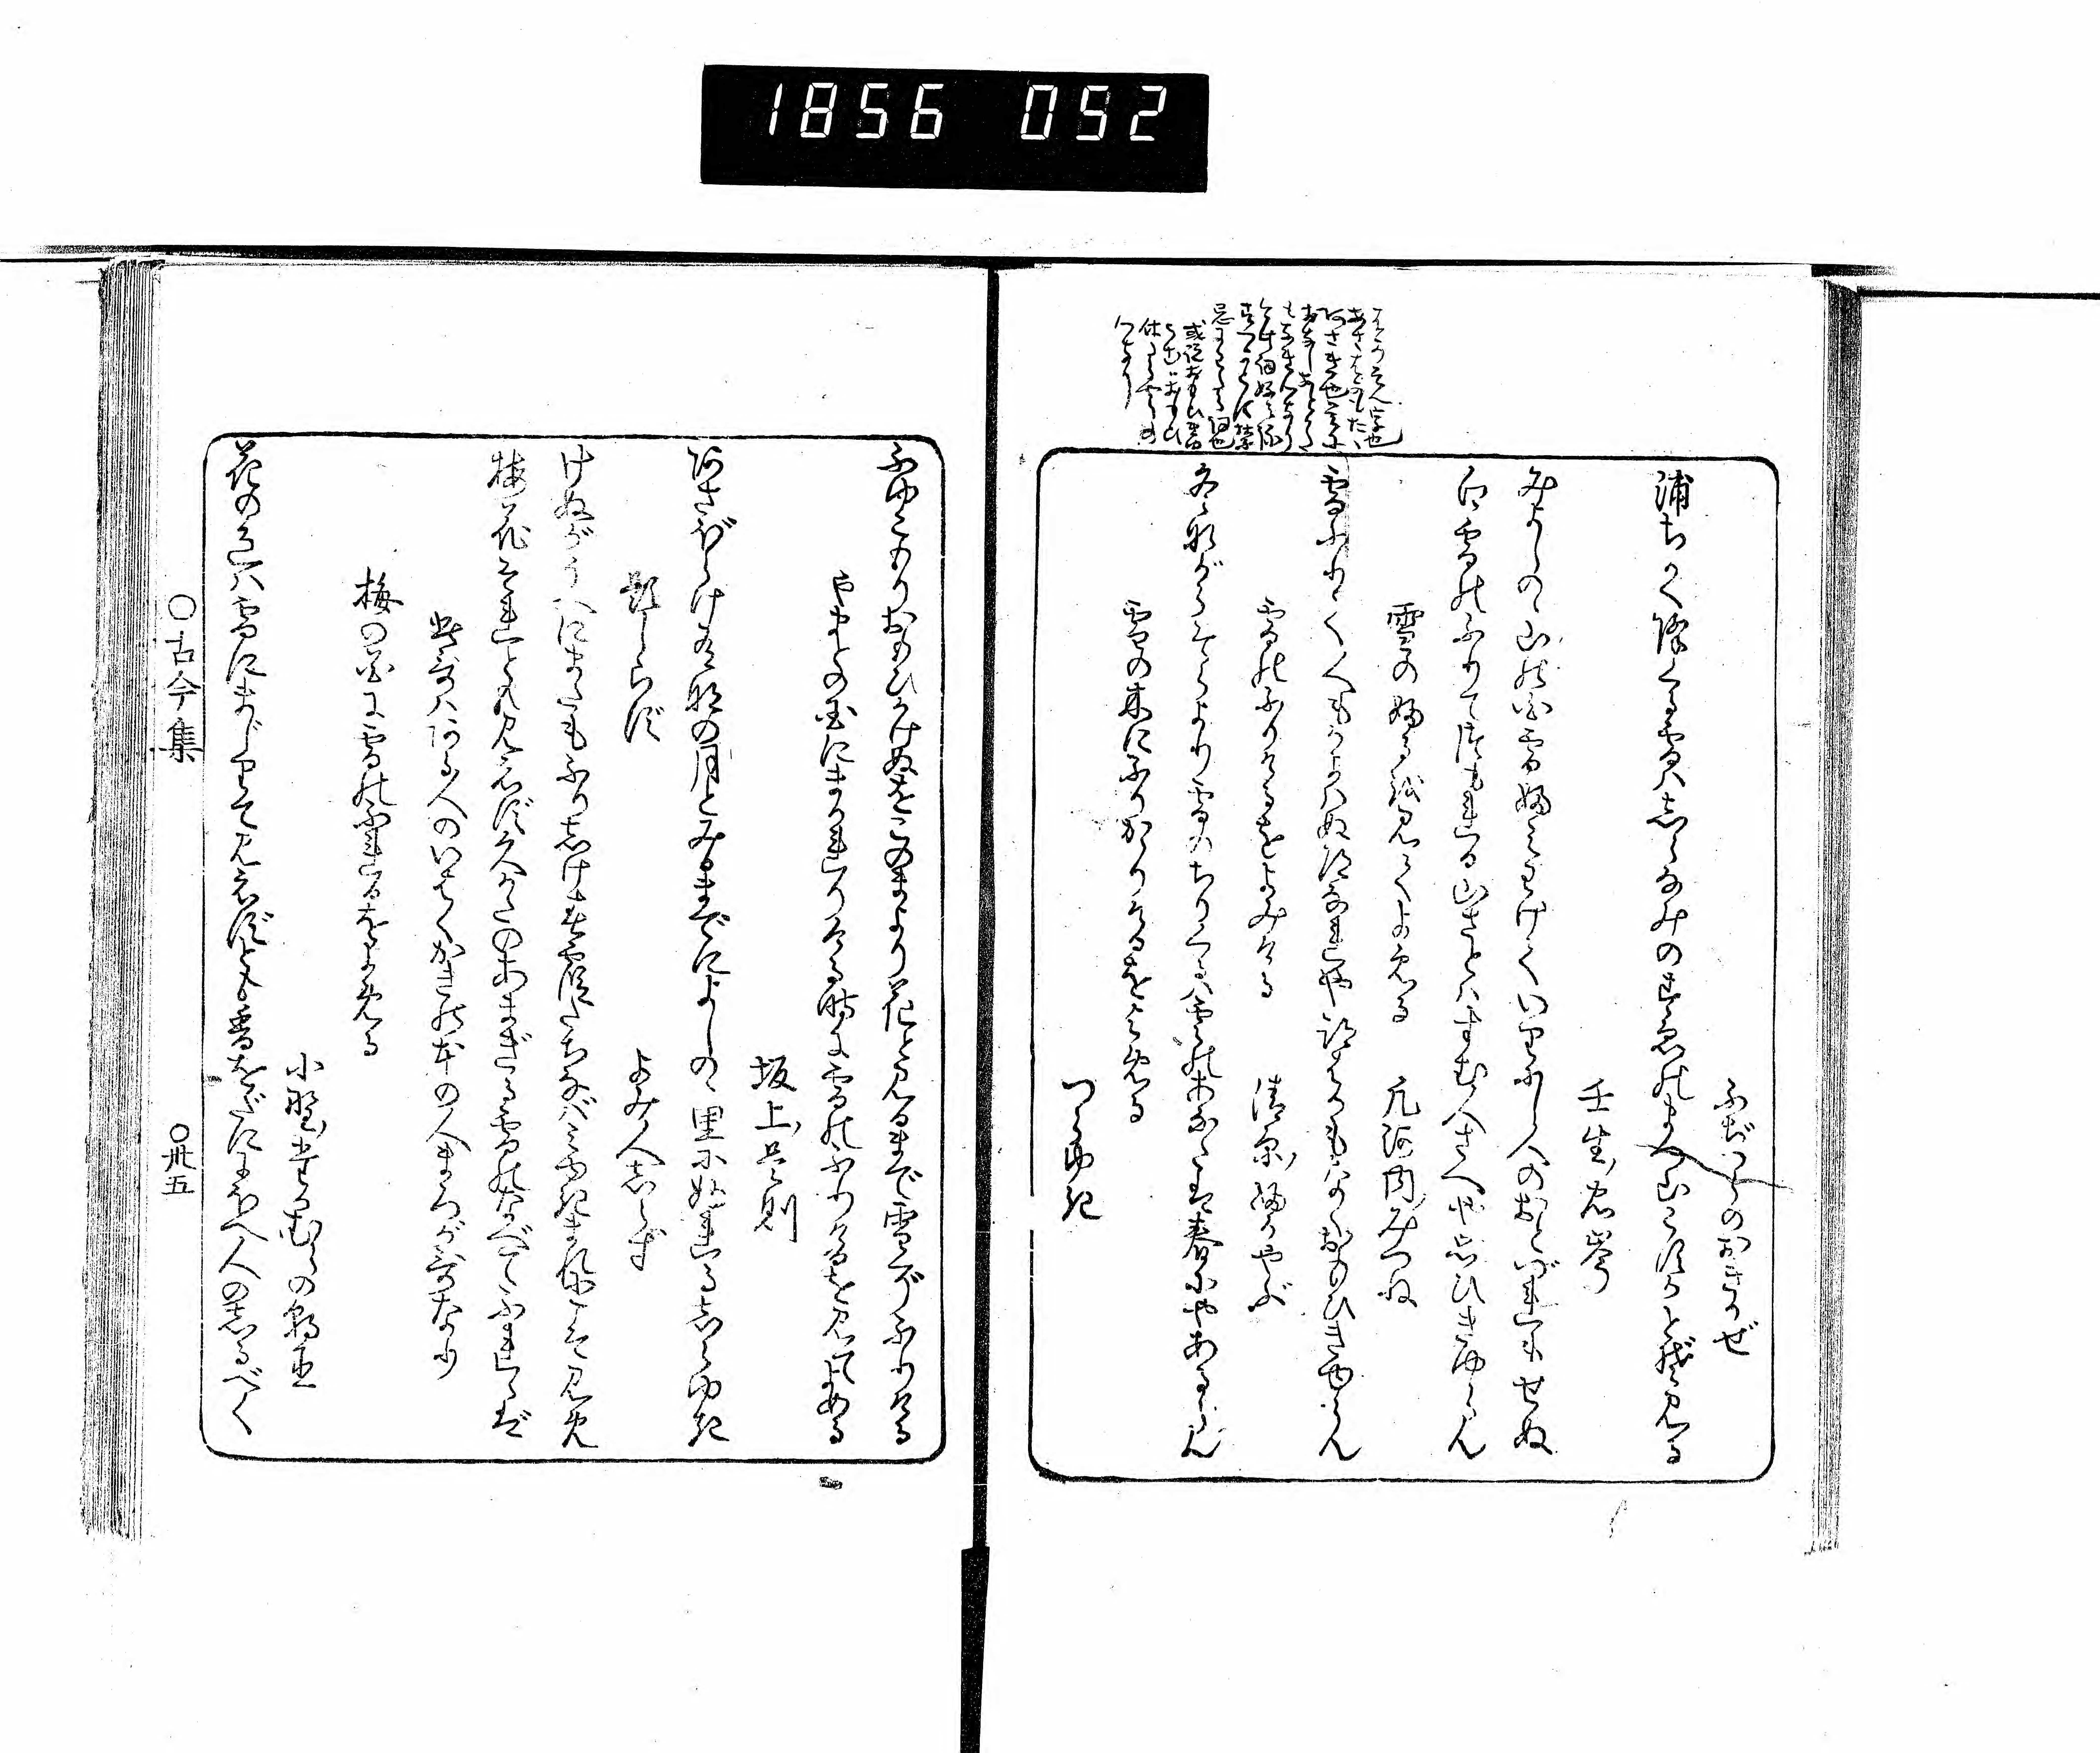 1856 052
ふぢはらのおきかぜ
浦ちかく降くる雪ハ志らなみのすゑのまつ山こすかとぞ見る
壬生忠岑
みよしのゝ山の白雪ふみわけていりにし人のおとづれもせぬ
白雪のふりてつもれる山さとハすむ人さへや思ひきゆらん
雪のふるを見てよめる
凡河内みつね
雪ふりて人もかよハぬ道なれやあとはかもなくおもひきゆらん
雪のふりけるをよみける
清原ふかやぶ
冬ながらそらより雪のちりくるハ雲のあなたは春にやあるらん
雪の木にふりかゝりけるをよめる
つらゆき
ふゆこもりおもひかけぬをこのまより花と見るまで雪ぞふりける
やまとの国にまかれりける時に雪のふりけるを見てよめる
坂上是則
阿さぼらけ有明の月とみるまでによしのゝ里にふれる志らゆき
題しらず
よみ人志らず
けぬがうへにまたもふり志け春霞たちなバみ雪まれにこそ見め
梅花それとも見えず久かたのあまぎる雪のなべてふれゝば
此哥ハ阿る人のいはくかきの本の人まろが哥なり
梅の花に雪のふれるをよめる
小野たかむらの朝臣
花の色ハ雪にまじりて見えずとも香をだににほへ人の志るべく
○古今集
○卅五